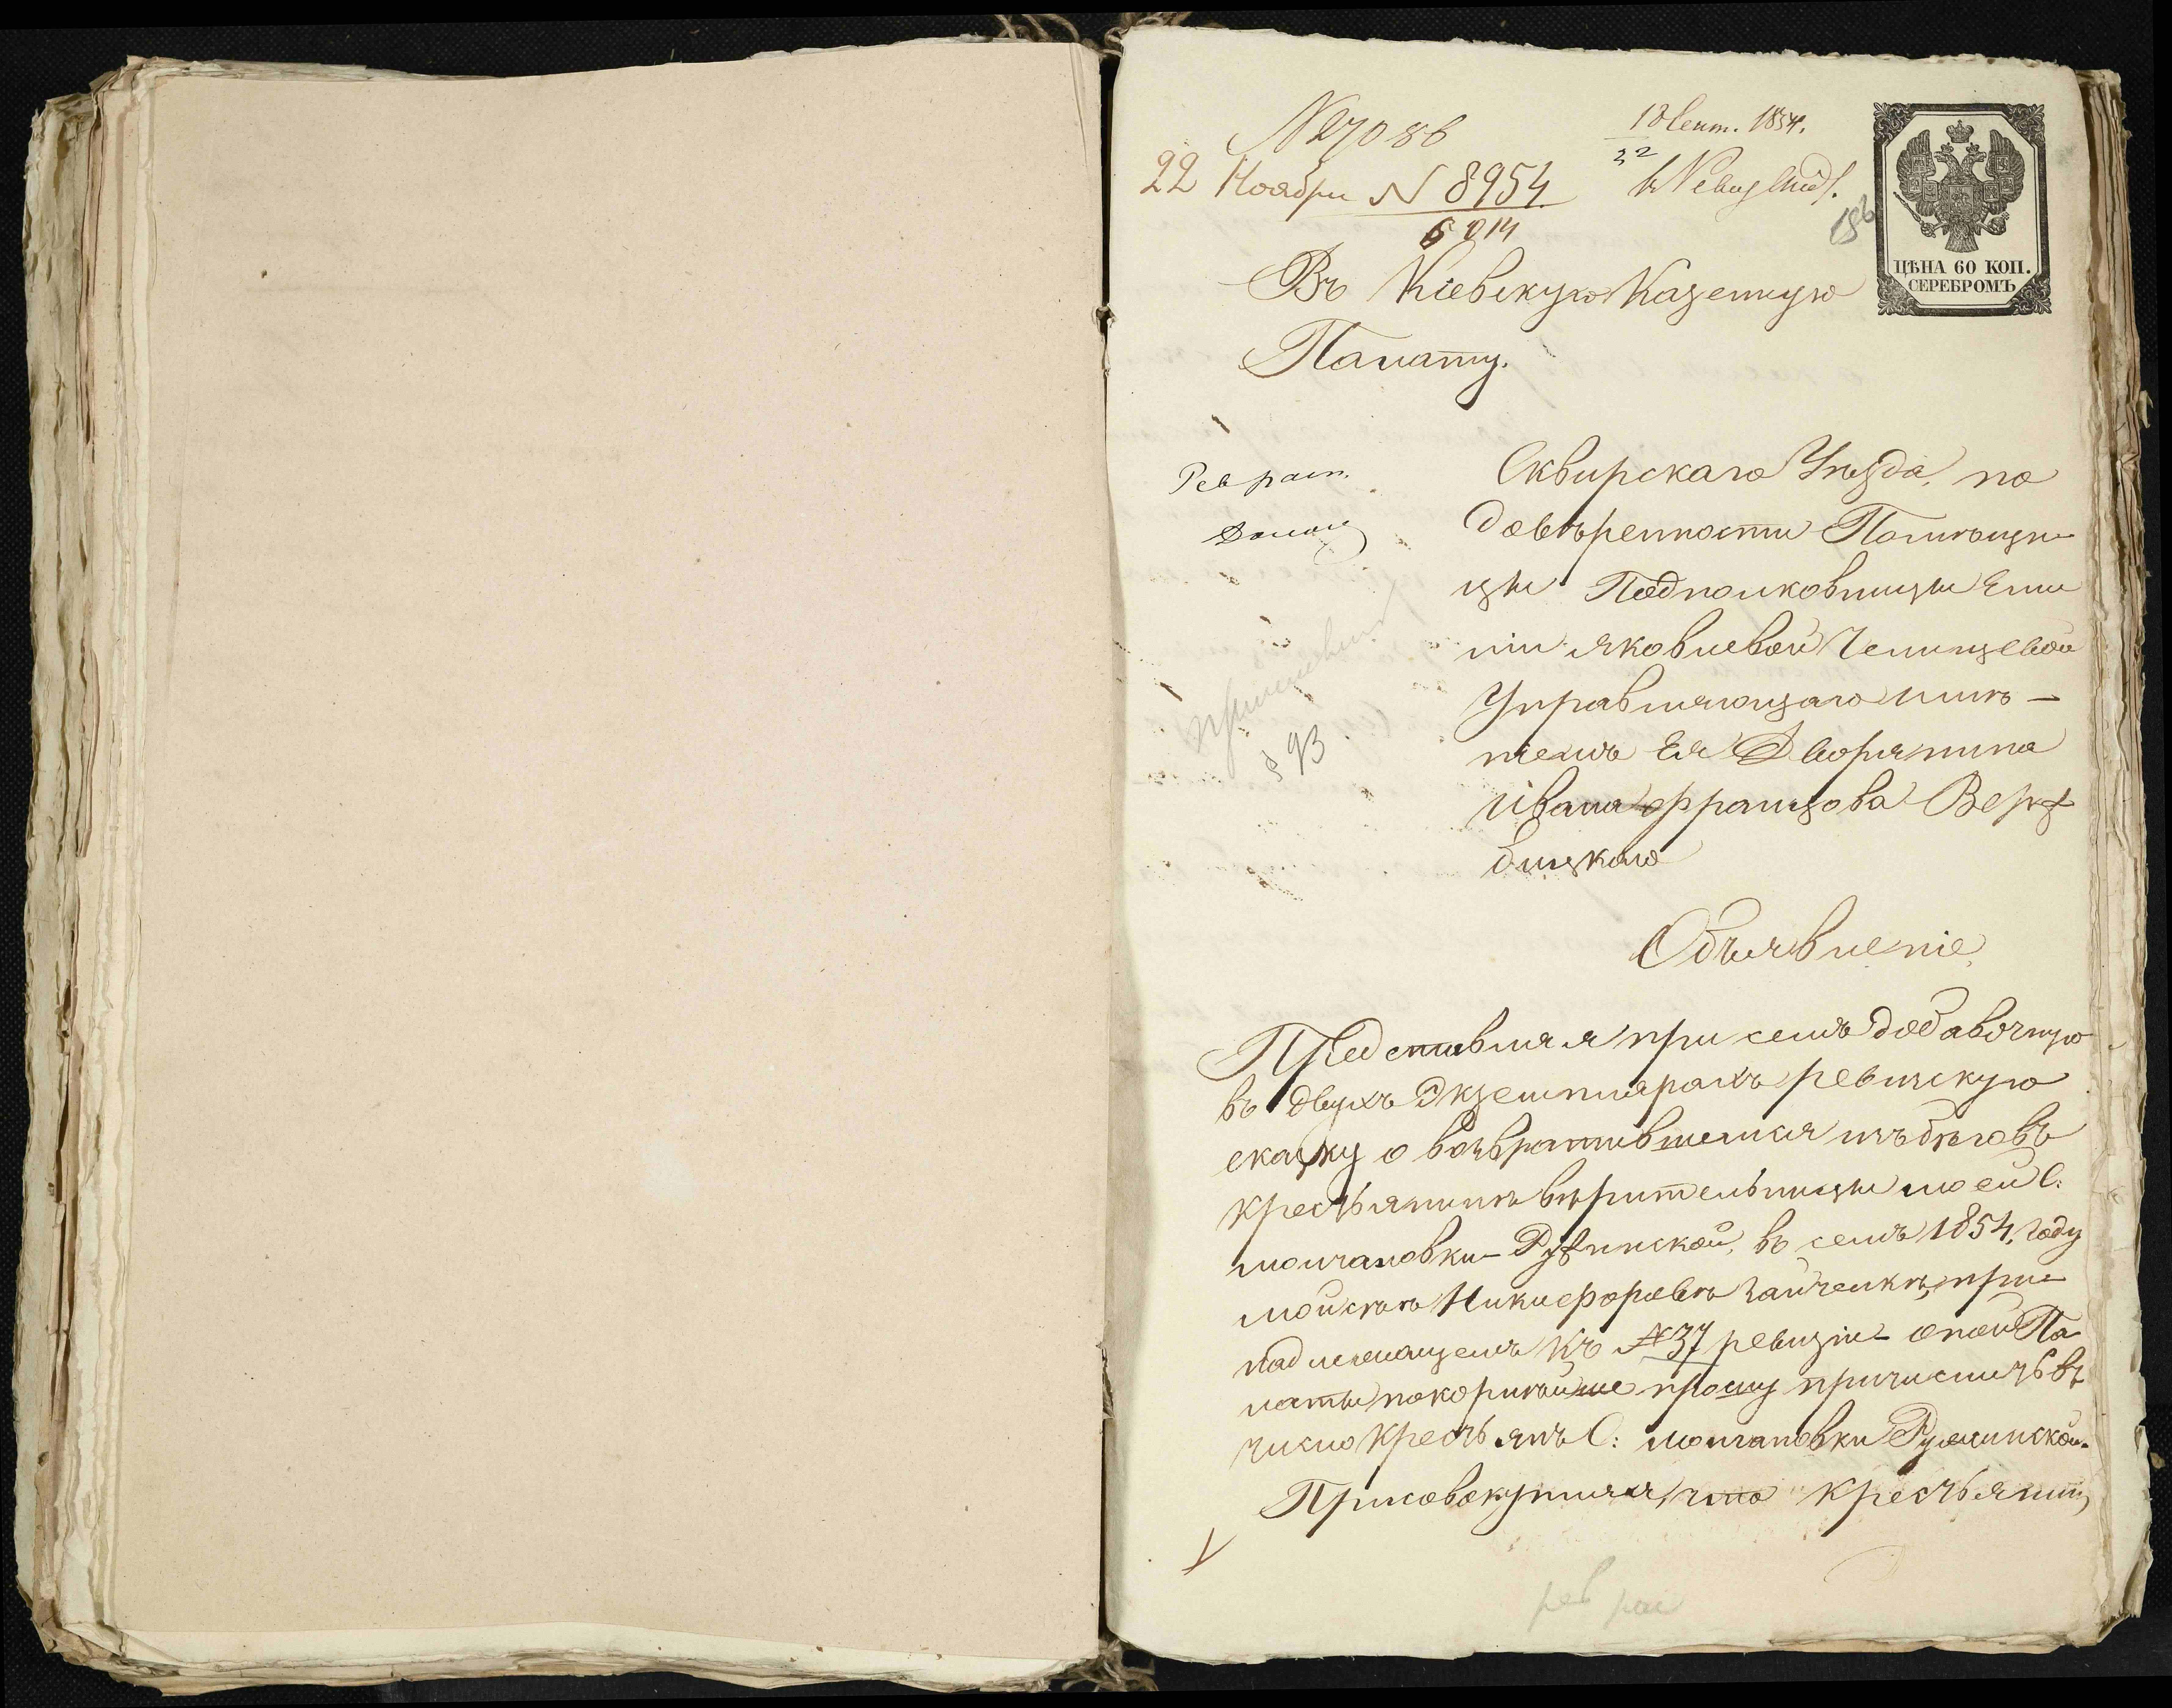 18 Сент. 1854.
22 Ноября N 8954
6014
ЦѢНА 60 КОП.
СЕРЕБРОМЪ
Въ Кіевскую Казенную
Палату.
Рев
Сквирскаго Уѣзда, по
довѣренности Помѣщи-
цы Подполковницы Еми
ліи Яковлевой Челищевой
Управляющаго имѣ-
ніемъ Ея Дворянина
Ивана Францова Верж
бицкаго
Объявленіе
Представляя при семъ добавочную
въ двухъ Экземплярахъ ревизскую
сказку о возвратившемся изъ бѣговъ
крестьянинѣ вѣрительницы моей С.
Молчановки Ружинской, въ семъ 1854, году
Мойсѣѣ Никифоровѣ Зайченкѣ, при-
надлежащемъ къ № 37 ревизіи оной Па
латы покорнѣйше прошу причислить въ
число крестьянъ С: Молчановки Ружинской.
Присовокупляя, что крестьянинъ
рев